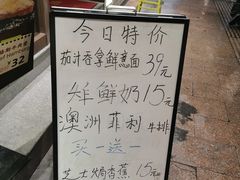 今日特价
茄汁吞拿鲜意面 39元
鲜奶 15元
澳洲菲利牛排
买一送一
芝士焗香蕉 15元
32